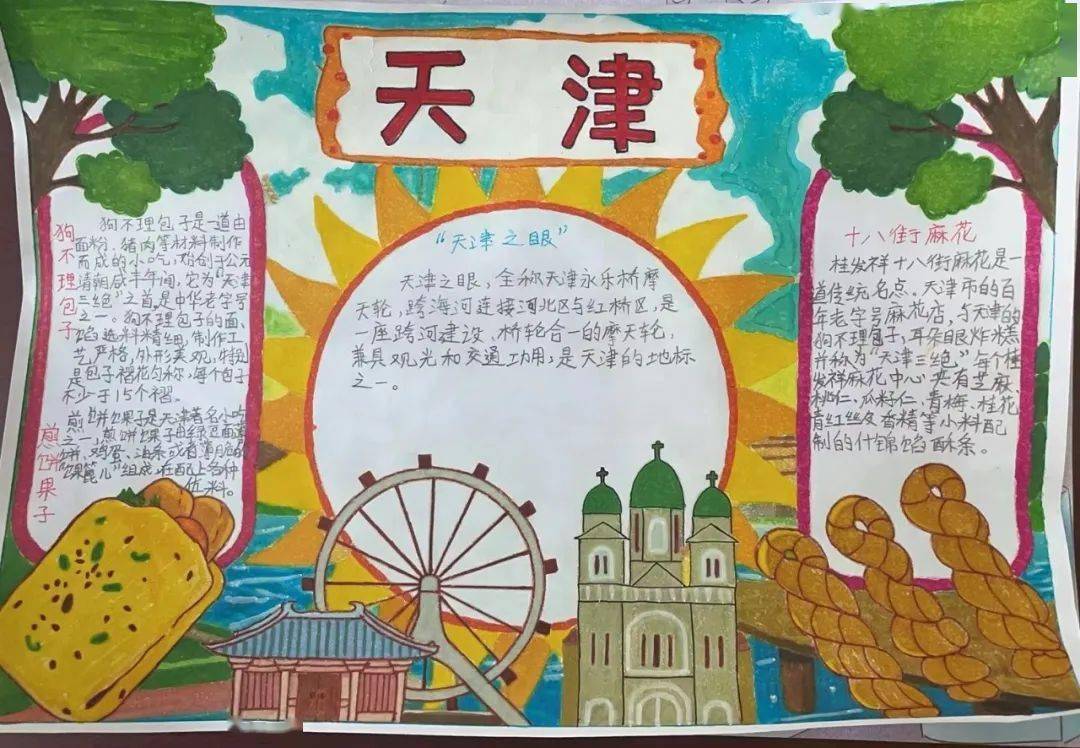 天津
狗不理包子
狗不理包子是一道由
面粉、猪肉等材料制作
而成的小吃,始创于公元
清朝咸丰年间,它为"天津
三绝"之首,是中华老字号
之一。狗不理包子的面、
馅选料精细,制作工
艺严格,外形美观,特别
是包子褶花匀称,每个包子
不少于15个褶。
煎饼果子
煎饼馃子是天津著名小吃
之一,煎饼馃子由绿豆面薄
饼、鸡蛋、油条或者薄脆的
"馃篦儿"组成,在配上各种
佐料。
"天津之眼"
天津之眼,全称天津永乐桥摩
天轮,跨海河连接河北区与红桥区,是
一座跨河建设、桥轮合一的摩天轮,
兼具观光和交通功用,是天津的地标
之一。
十八街麻花
桂发祥十八街麻花是一
道传统名点、天津市的百
年老字号麻花店,与天津的
狗不理包子,耳朵眼炸糕
并称为"天津三绝",每个桂
发祥麻花中心夹有芝麻、
桃仁、瓜籽仁、青梅、桂花
青红丝及香精等小料配
制的什锦馅酥条。